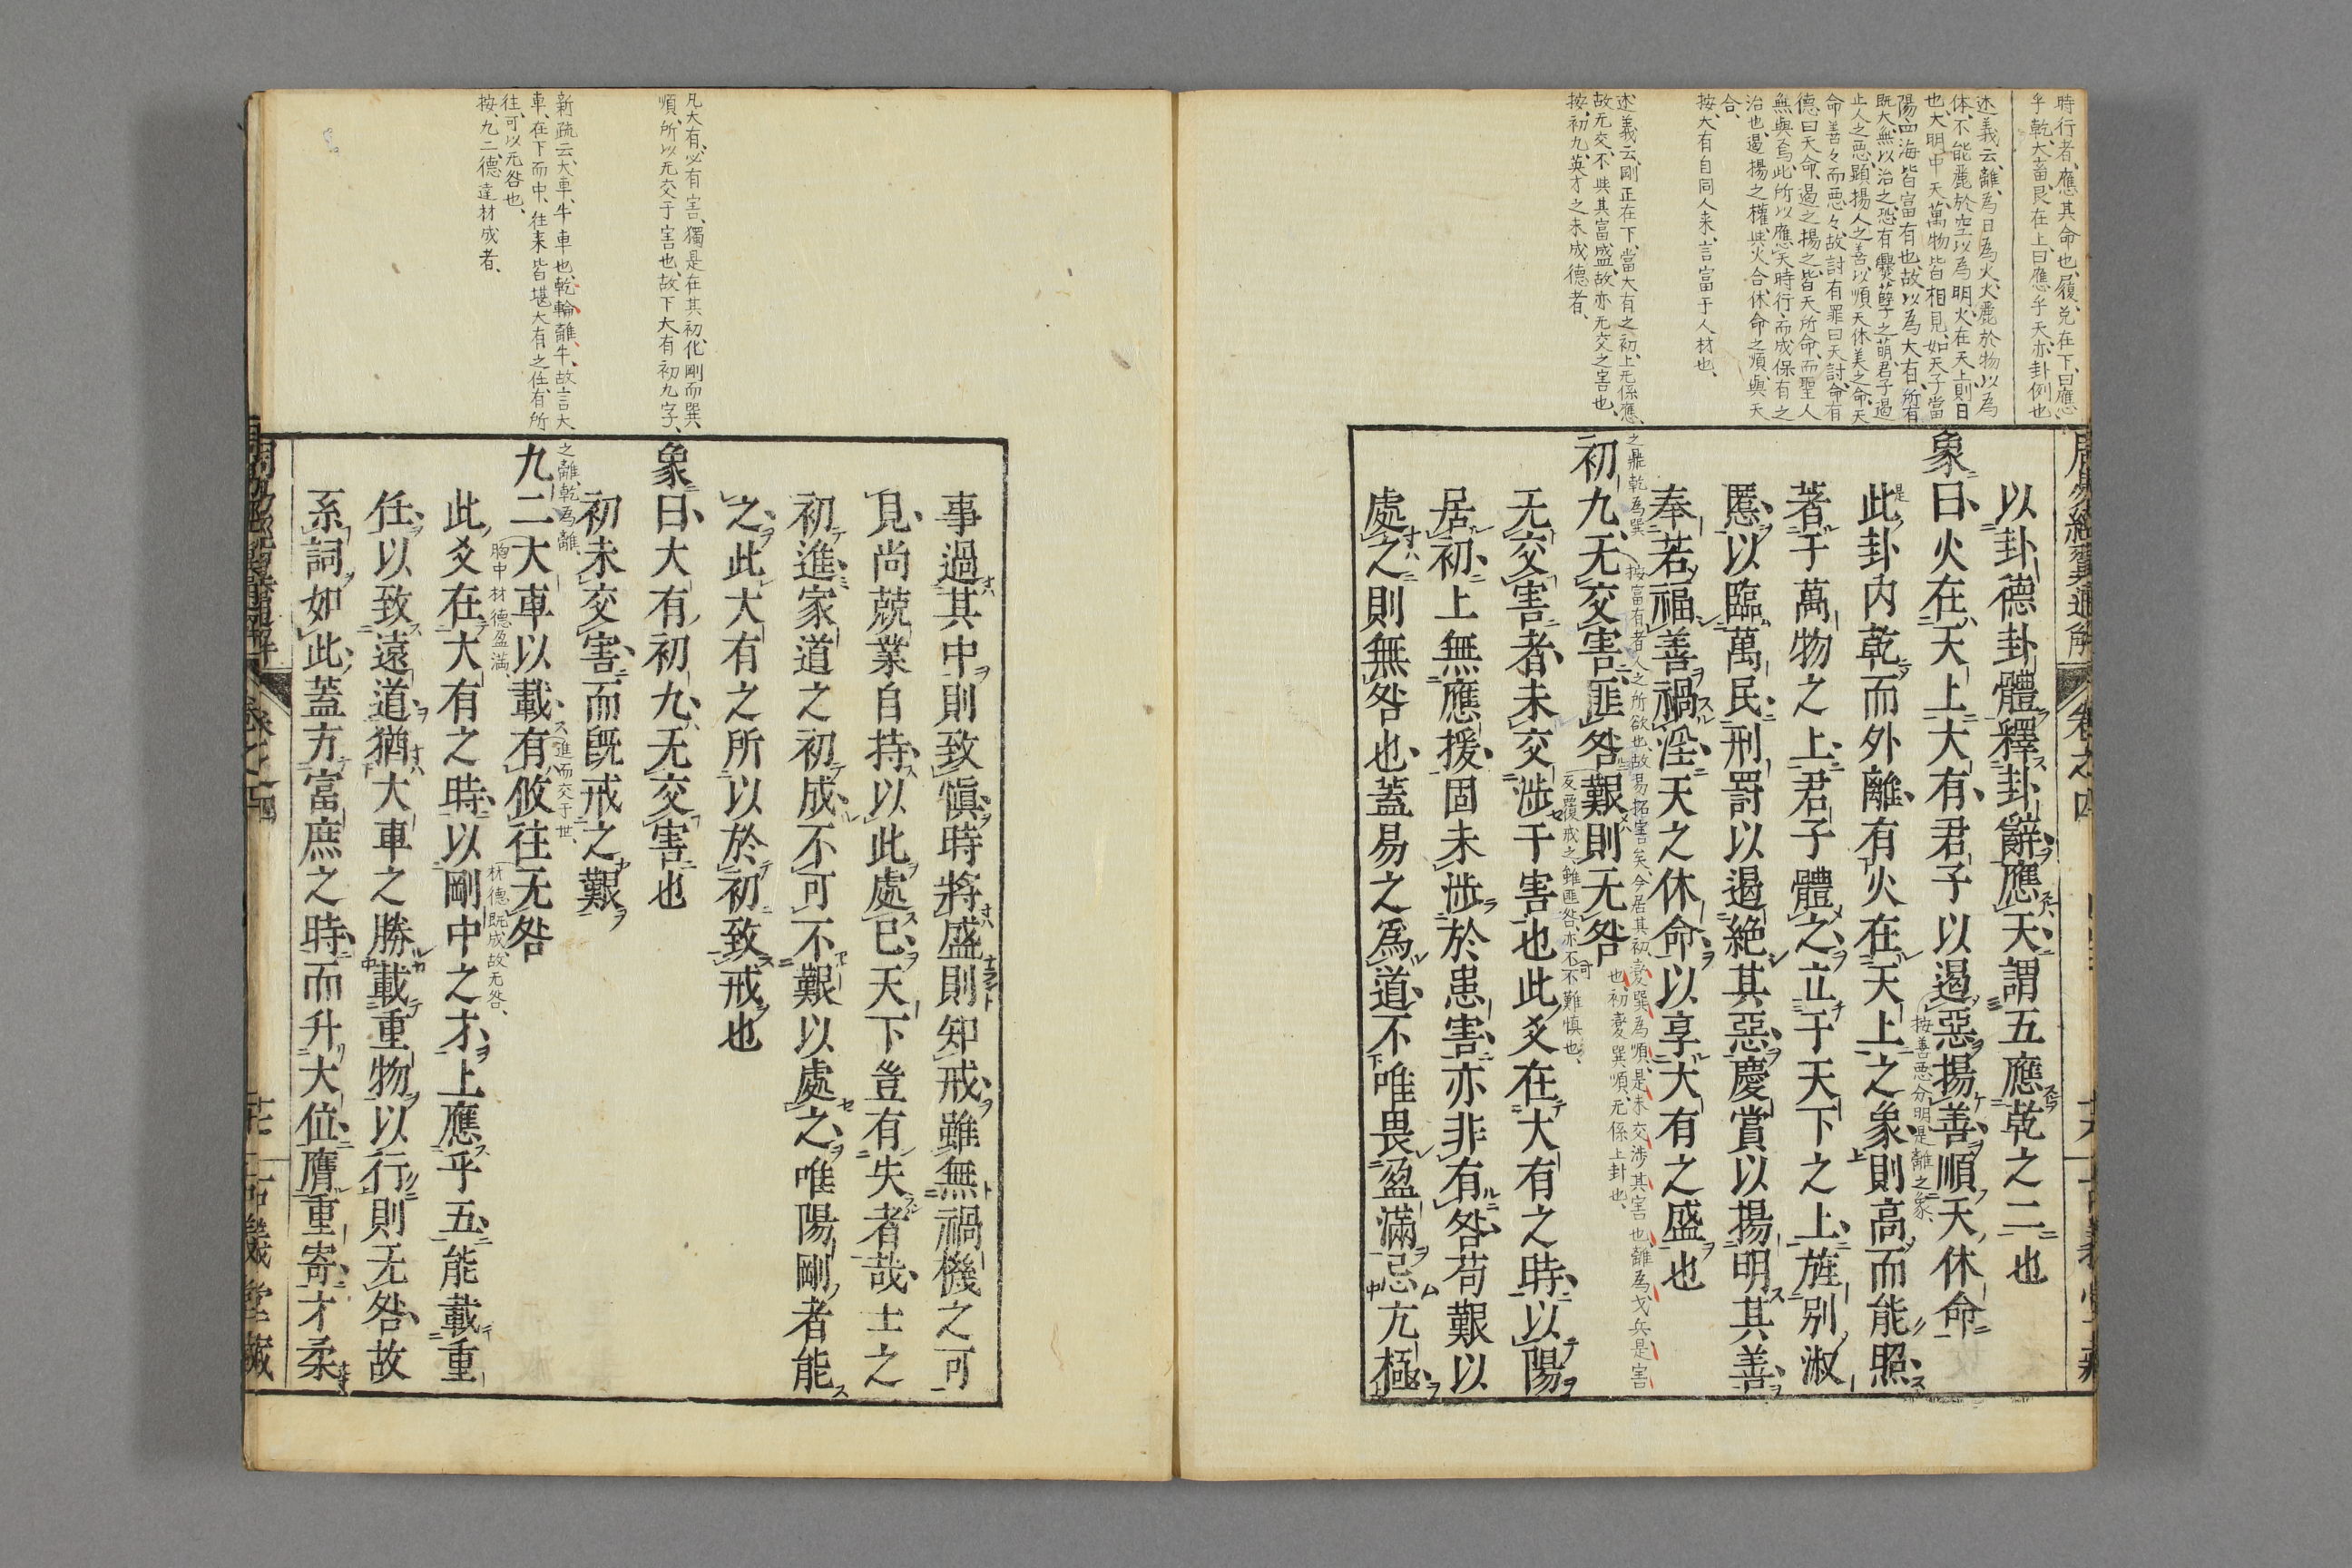 時行者、應其命也、履、兌在下、曰應
乎乾、大畜、艮在上、曰應乎天、亦卦例也
述義云、離、為日為火、火麗於物、以為
体、不能麗於空以為明、火在天上、則日
也、大明中天、萬物皆相見、如天子當
陽、四海皆富有也、故以為大有、所有
既大、無以治之、恐有釁孽之萌、君子遏
止人之惡、顯揚人之善、以順天休美之命、天
命善々而惡々、故討有罪曰天討、命有
德曰天命、遏之揚之、皆天所命、而聖人
無與焉、此所以應天時行、而成保有之
治也、遏揚之權、與火合、休命之順、與天
合、
按、大有自同人来、言富于人材也、
述義云、剛正在下、當大有之初、上无係應、
故无交、不與其富盛、故亦无交之害也、
按、初九、英才之未成德者、
周易經翼通解
卷之四
以卦德卦體釋卦辭應天謂五應乾之二也
象曰火在天上大有君子以遏惡揚善順天休命
按善惡分明是離之象、
此卦内乾而外離有火在天上之象則高而能照
著于萬物之上君子體之立于天下之上旌別淑
慝以臨萬民刑罰以遏絶其惡慶賞以揚明其善
奉若福善禍淫天之休命以享大有之盛也
之鼎乾為巽
按富有者人之所欲也、故易拓害矣、今居其初、變巽為順、是未交渉其害也、離為戈兵、是害
也、初變巽順、无係上卦也、
初九无交害匪咎艱則无咎
反覆戒之、雖匪咎、亦不可不難慎也、
无交害者未交渉于害也此爻在大有之時以陽
居初上無應援固未渉於患害亦非有咎苟艱以
處之則無咎也蓋易之為道不唯畏盈滿忌亢極
凡大有、必有害、獨是在其初、化剛而巽
順、所以无交于害也、故下大有初九字、
新疏云、大車、牛車也、乾輪離牛、故言大
車、在下而中、往来皆堪大有之任、有所
往、可以无咎也、
按、九二、德達材成者、
事過其中則致愼時將盛則知戒雖無禍機之可
見尚兢業自持以此處已天下豈有失者哉士之
初進家道之初成不可不艱以處之唯陽剛者能
之此大有之所以於初致戒也
象曰大有初九无交害也
初未交害而旣戒之艱
之離、乾為離、
九二大車以載有攸往无咎
進而交于世、
胸中材德盈滿、
材德既成、故无咎、
此爻在大有之時以剛中之才上應乎五能載重
任以致遠道猶大車之勝載重物以行則无咎故
系詞如此蓋方富庶之時而升大位膺重寄才柔